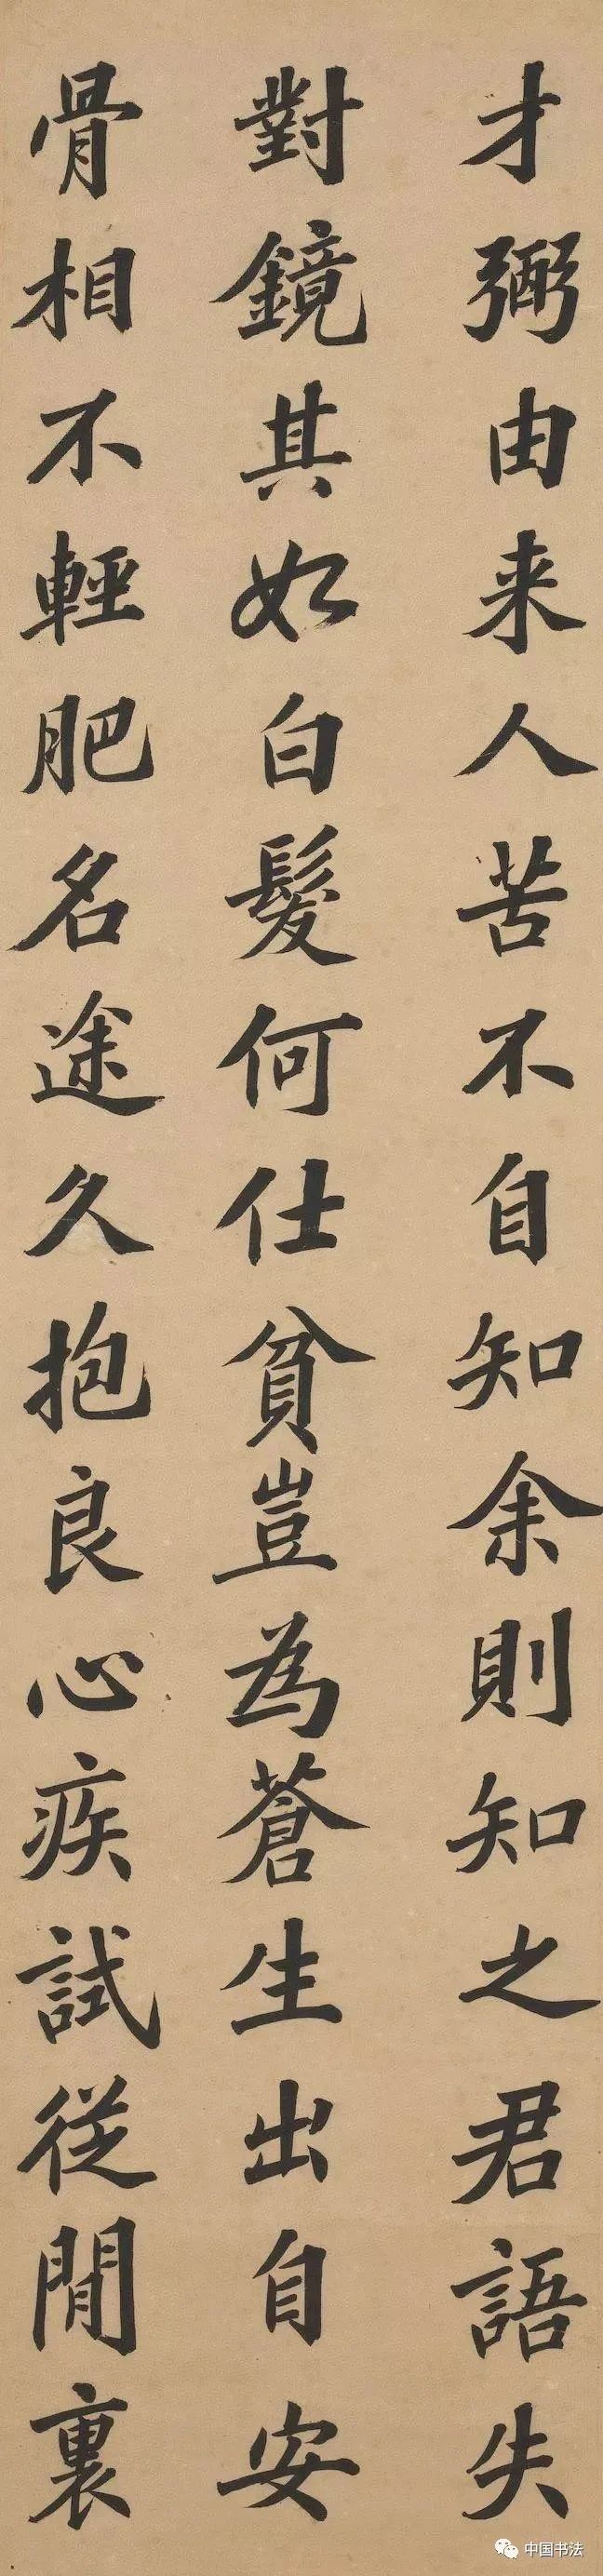 才弼由来人苦不自知余則知之君語失
對鏡其如白髮何仕貧豈為蒼生出自安
骨相不輕肥名途久抱良心疾試從閒裏
中国书法